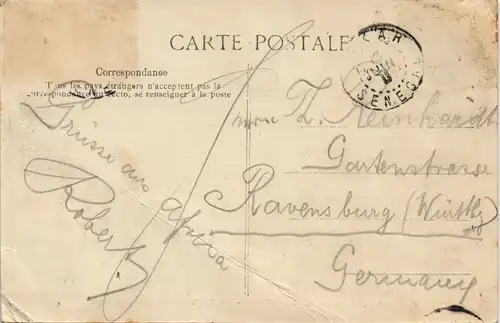 CARTE POSTALE
Correspondance
Tous les pays étrangers n'acceptent pas la
correspondance au recto, se renseigner à la poste
Grüsse aus Afrika
Robert
AR
SENEGA
Reinhardt
Gartenstrasse
Ravensburg (Württbg)
Germany